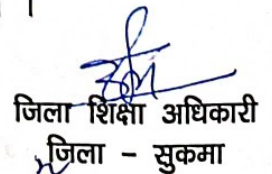 जिला शिक्षा अधिकारी
जिला - सुकमा